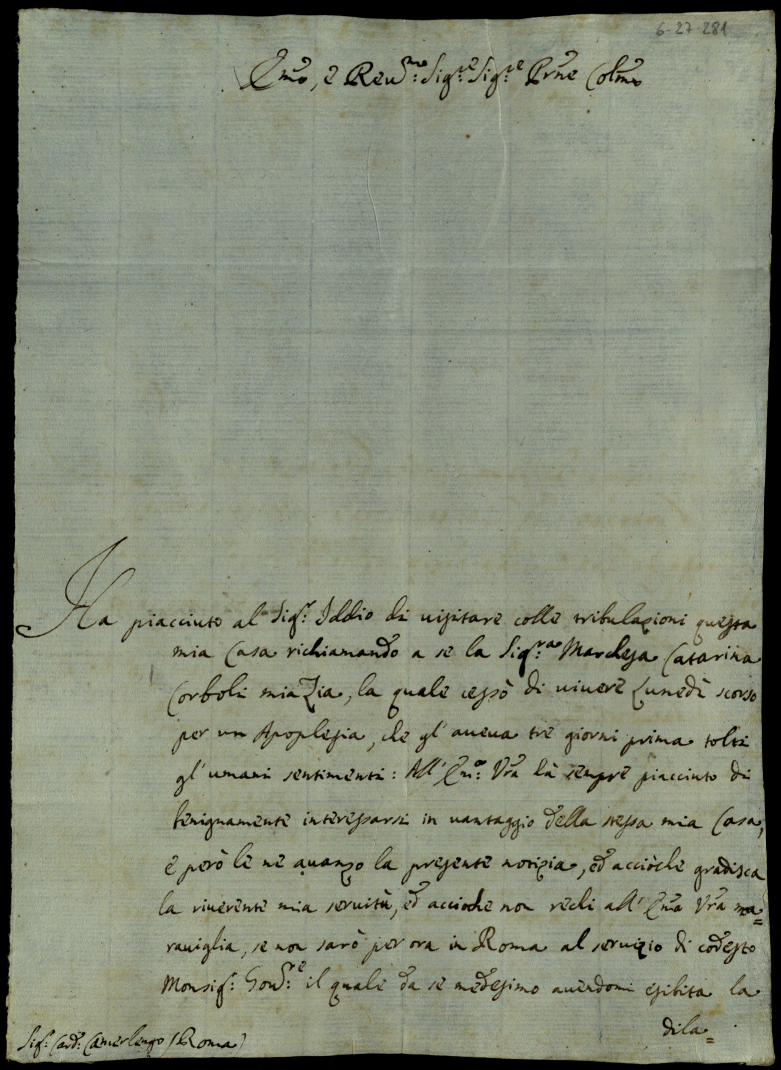 6-27-281
Emõ, e Reuᵐᵒ: Sigʳᵉ Sigʳᵉ Prñe Colmõ
Ha piacciuto al Sigʳ: Iddio di uisitare colle tribulazioni questa
mia Casa richiamando a se la Sigʳᵃ: Marchesa Catarina
Corboli mia Zia, la quale cessò di uiuere Lunedì scorso
per un Apoplesia, che gl'aueua tre giorni prima tolti
gl'umani sentimenti: All'Emᵃ: Vrã hà sempre piacciuto di
benignamente interessarsi in uantaggio della stessa mia Casa,
e però le ne auanzo la presente notizia, ed acciòche gradisca
la riuerente mia seruitù, ed accioche non rechi all'Emã Vrã ma=
rauiglia, se non sarò per ora in Roma al seruizio di codesto
Monsigʳ: Gouʳᵉ: il quale da se medesimo auendomi esibita la
dila=
Sigʳ: Card: Camerlengo (Roma)